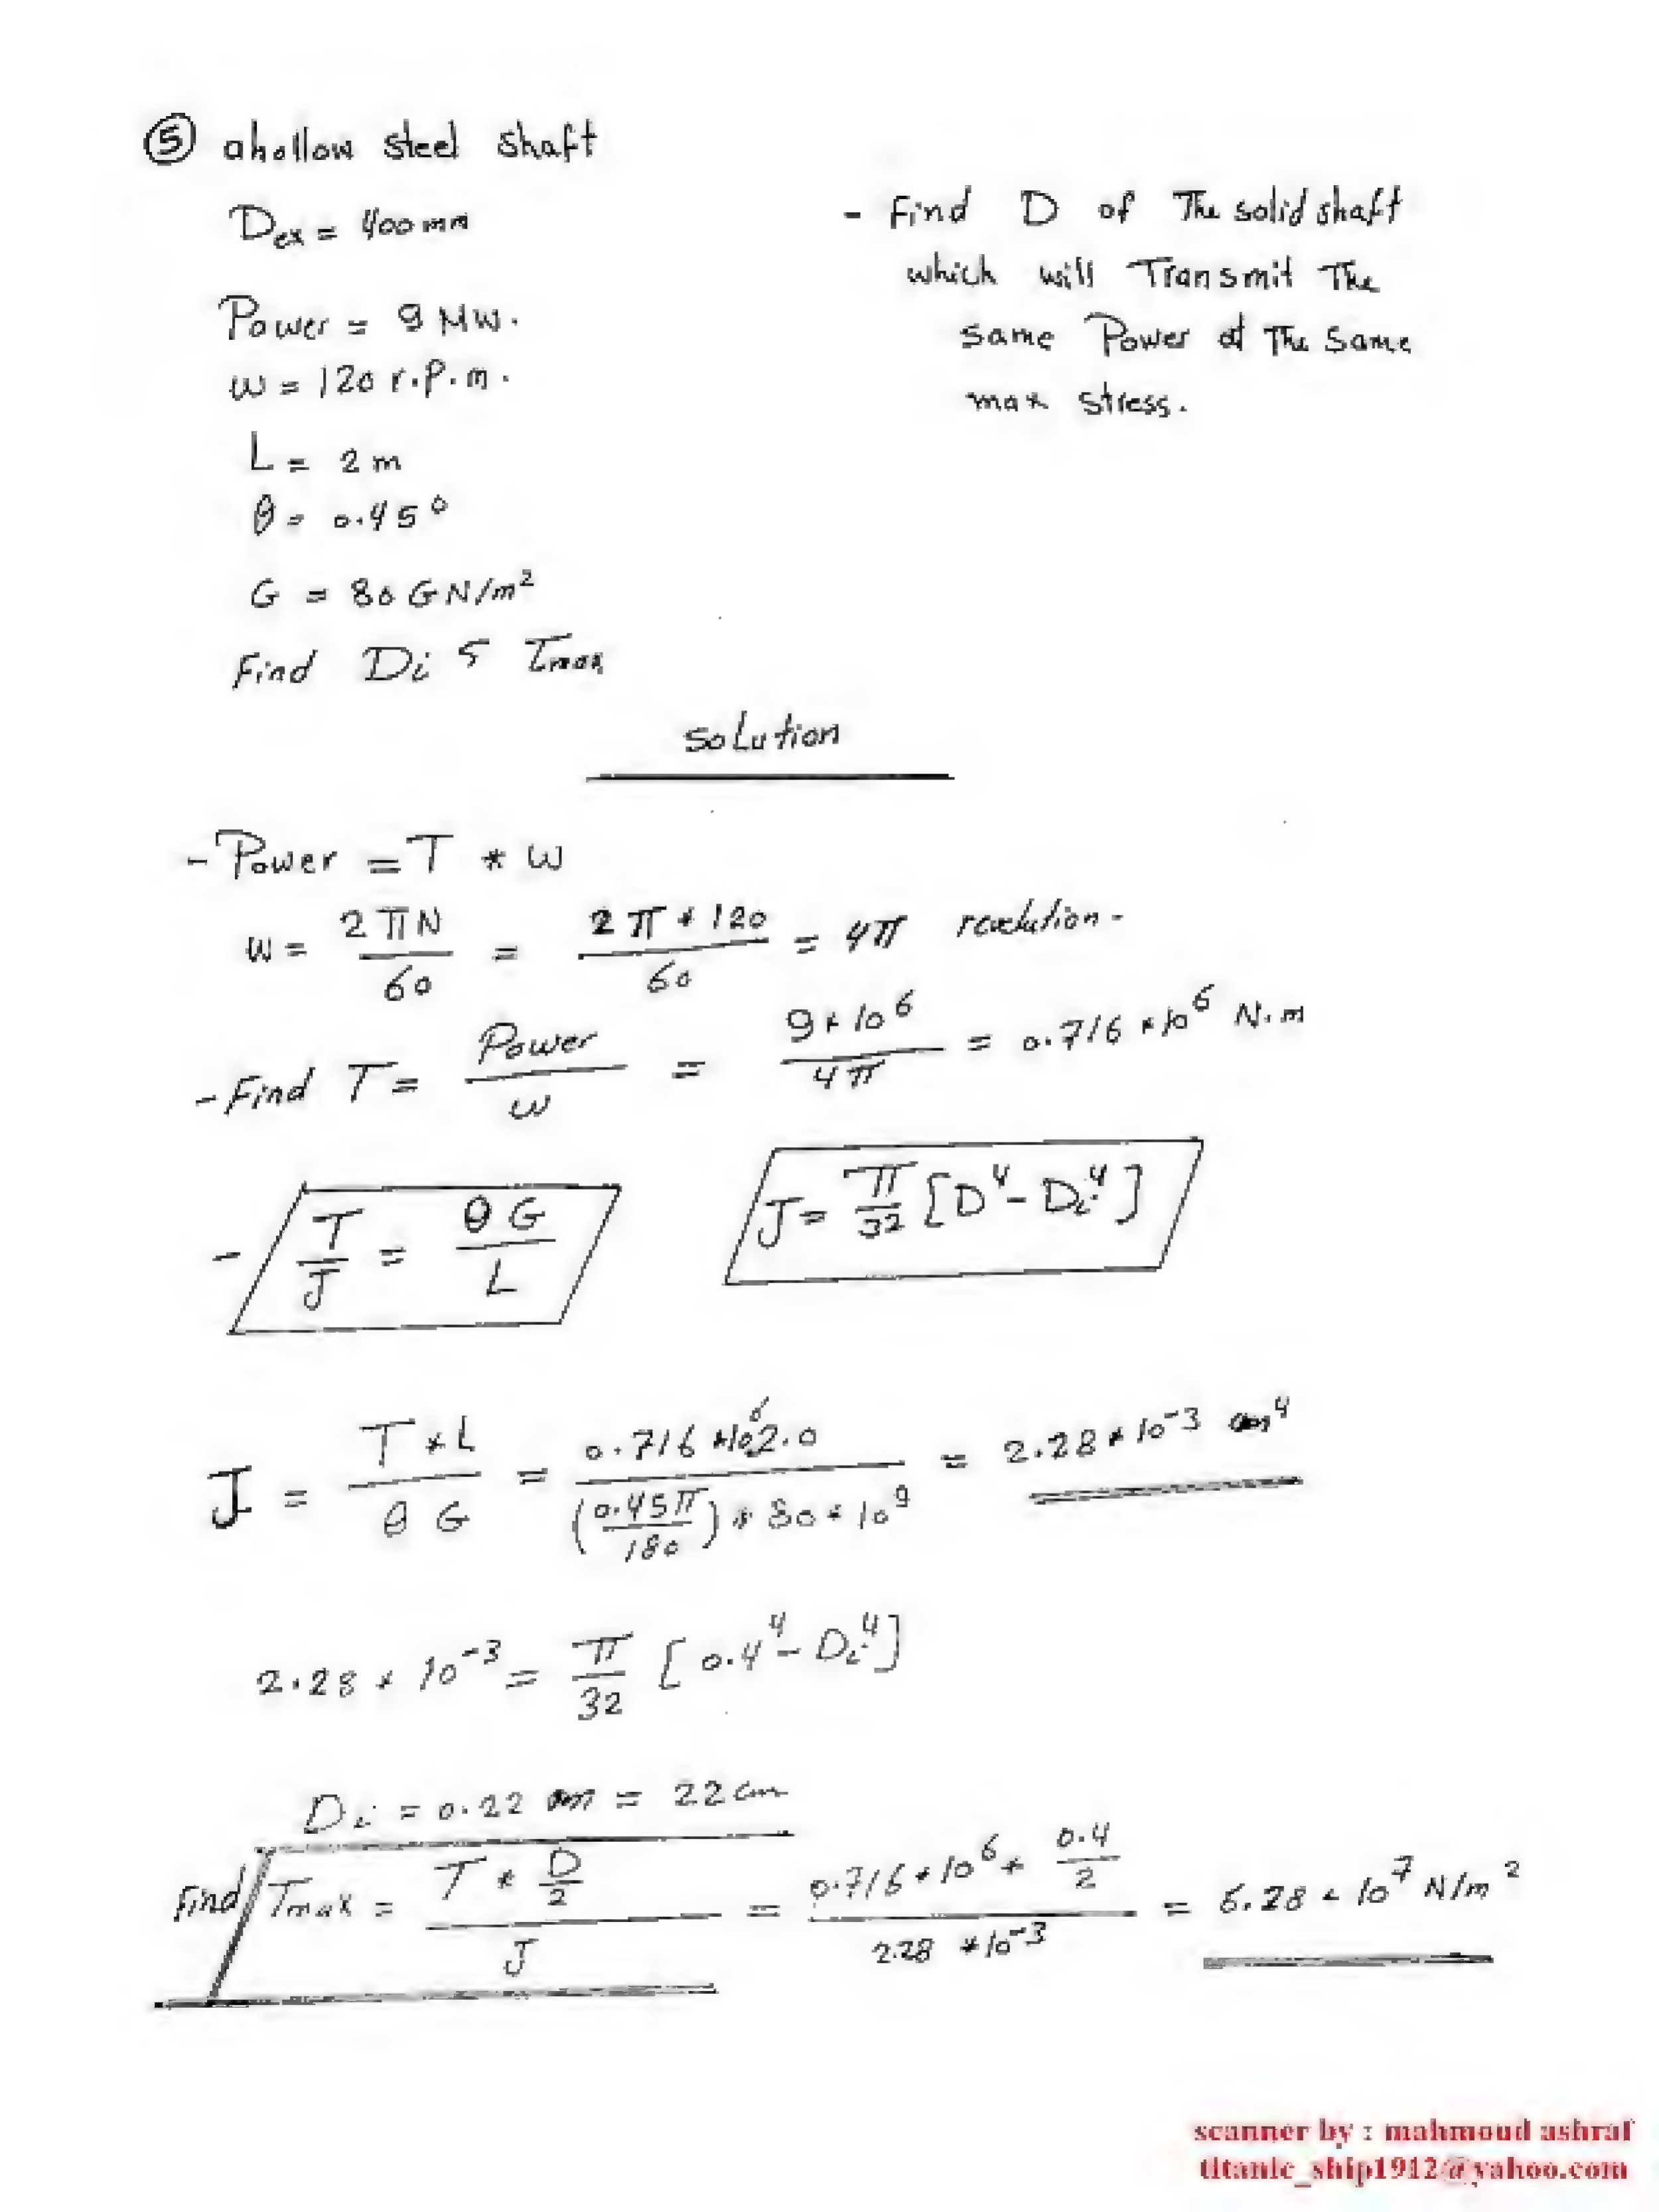 ⑤ ahollow steel shaft
Dex = 400 mm
Power = 9 MW.
w = 120 r.P.m.
L = 2 m
θ = 0.45°
G = 80 GN/m²
Find Di & Tmax
- Find D of The solid shaft
which will Transmit The
same Power at The same
max stress.
solution
- Power = T * w
w = 2πN/60 = 2π*120/60 = 4π
- Find T = Power/w = 9*10⁶/4π = 0.716*10⁶ N.m
- T/J = θG/L
J = π/32 [D⁴ - Di⁴]
J = T*L/θG = 0.716*10⁶*2.0/(0.45π/180)*80*10⁹ = 2.28*10⁻³
2.28*10⁻³ = π/32 [0.4⁴ - Di⁴]
Di = 0.22 m = 22 cm
Find Tmax = T*D/2/J = 0.716*10⁶*0.4/2/2.28*10⁻³ = 6.28*10⁷ N/m²
scanner by : mahmoud ashraf
titanic_ship1912@yahoo.com